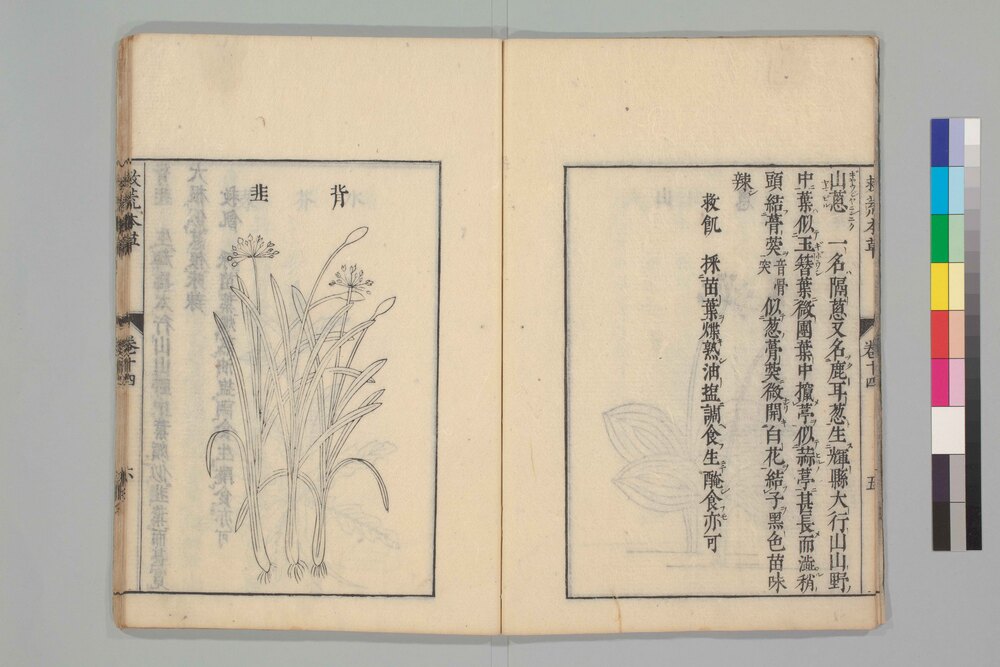 山蔥 一名隔蔥又名鹿耳葱生輝縣太行山山野
中葉似玉簪葉微團葉中攛葶似蒜葶甚長而澁稍
頭結蓇葖音骨突似葱蓇葖微開白花結子黑色苗味
辣
救飢 採苗葉煠熟油塩調食生醃食亦可
卷十四
五
背韭
救荒本草
卷十四
六